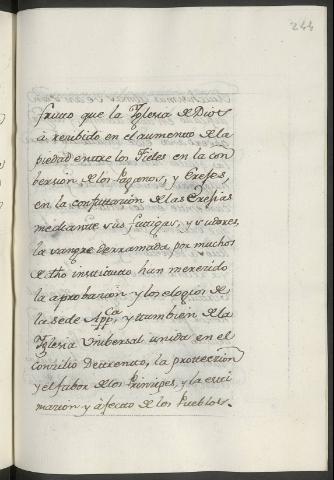 244
fruto que la Yglesia de Dios
à recibido en el aumento de la
piedad entre los Fieles en la con
bersion, de los Paganos, y Ereges,
en la confuttacion de las Eregias
mediante sus fatigas, y sudores,
la sangre derramada por muchos
de dho instituto han merecido
la aprobacion y los elogios de
la sede App.ca y tambien de la
Yglesia Unibersal unida en el
Conzilio Detrento, la protteccion
y el fabor de los Principes, y la esti
macion y àfecto de los Pueblos.